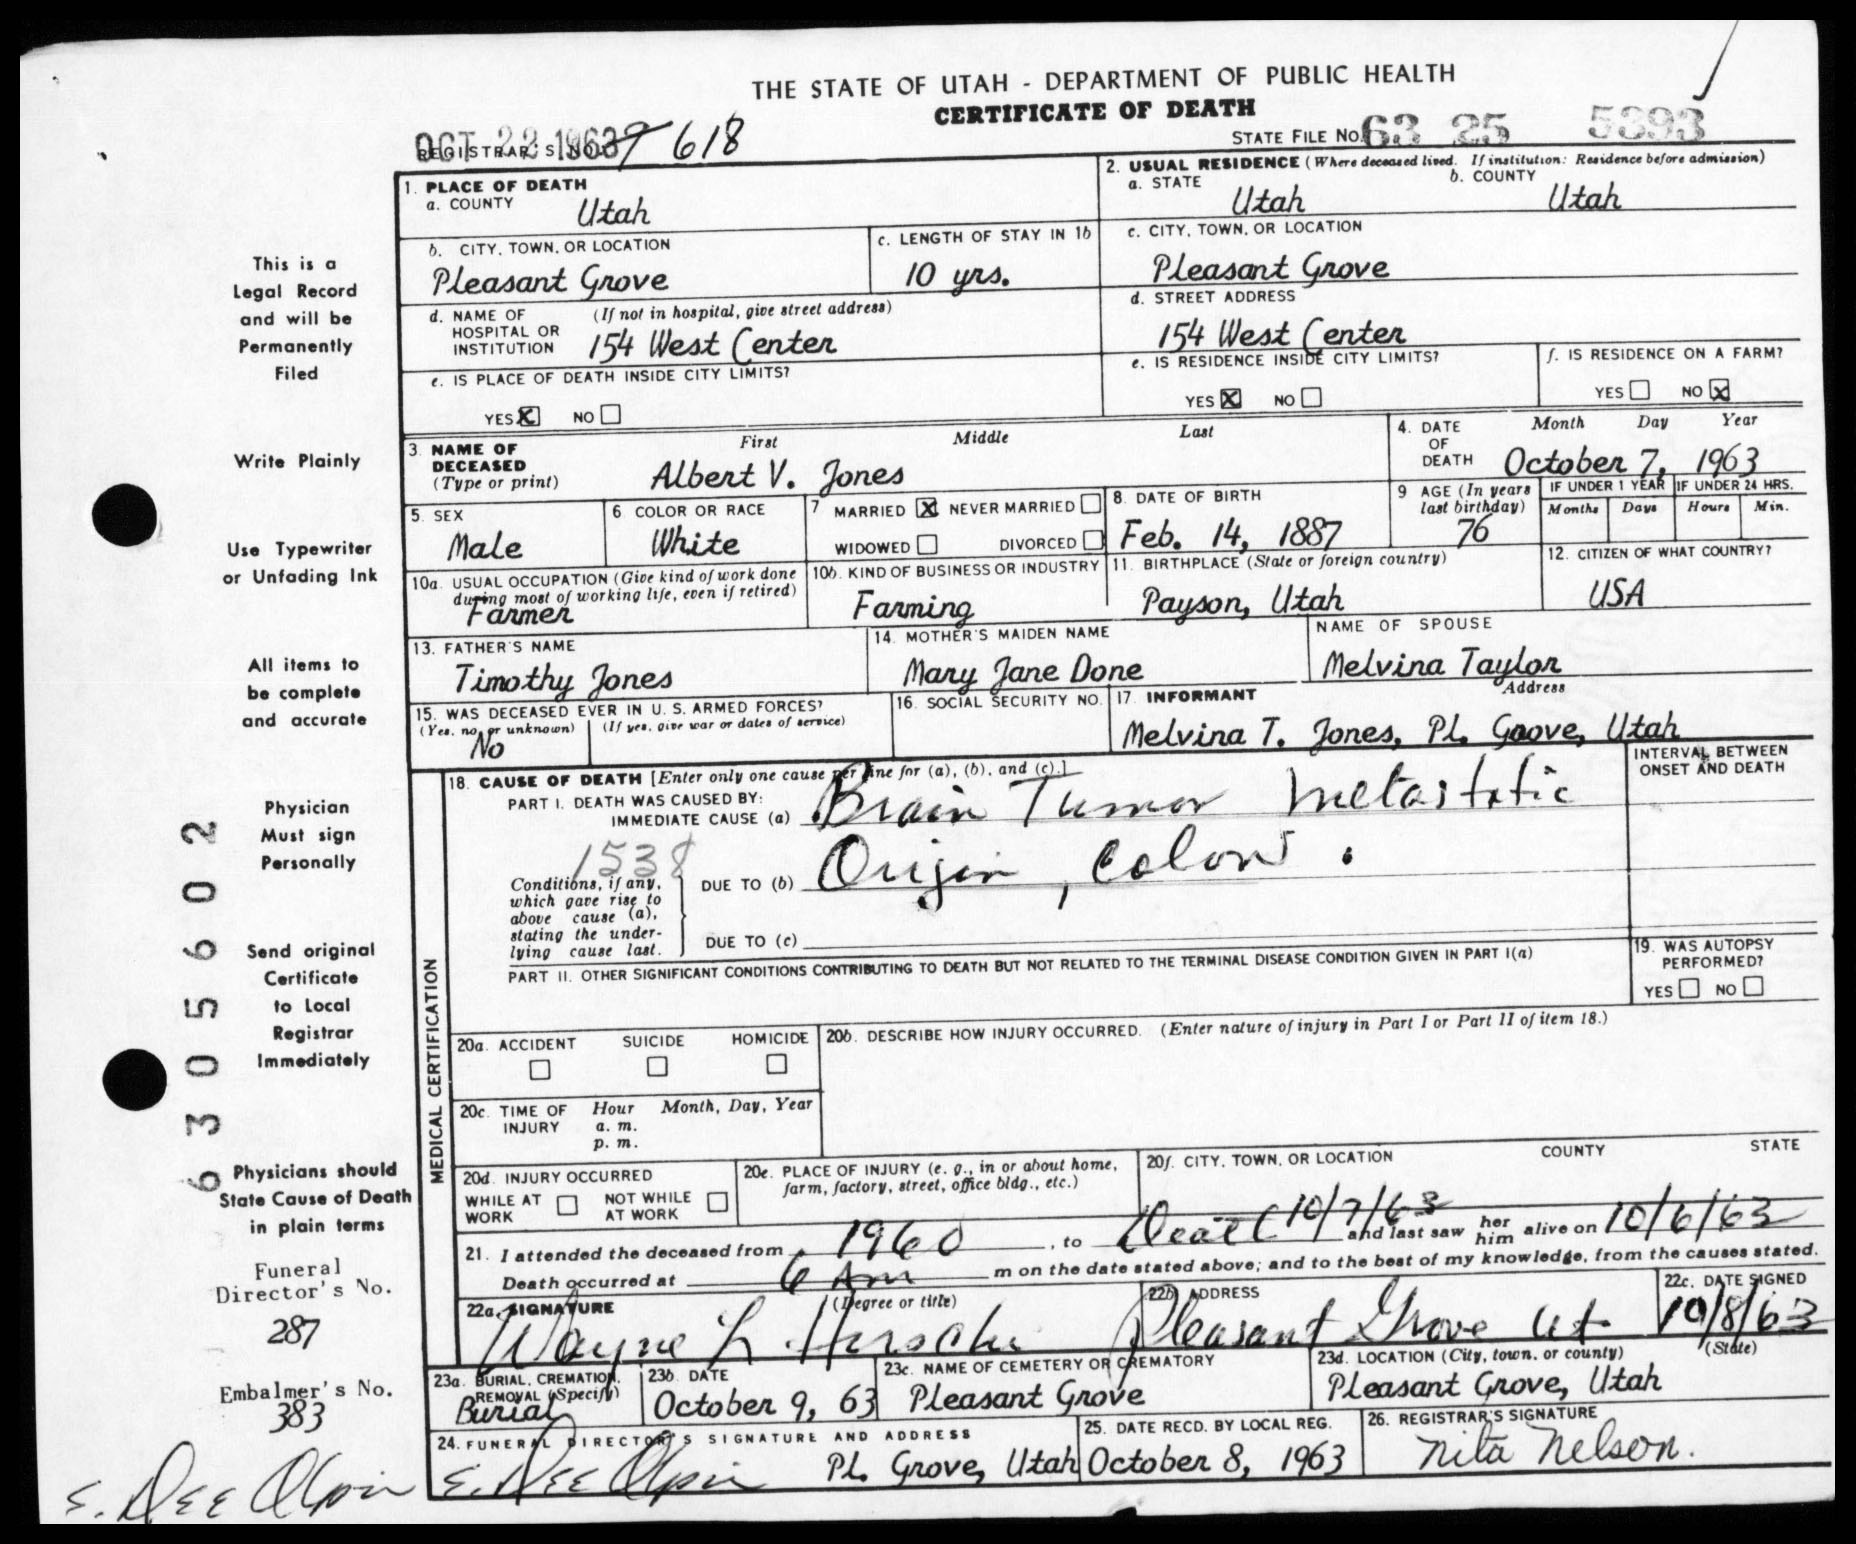 THE STATE OF UTAH - DEPARTMENT OF PUBLIC HEALTH
CERTIFICATE OF DEATH
OCT 22 1963 618
REGISTRAR'S NO.
STATE FILE NO. 63 25 5393
1. PLACE OF DEATH
a. COUNTY Utah
2. USUAL RESIDENCE (Where deceased lived. If institution: Residence before admission)
a. STATE Utah b. COUNTY Utah
b. CITY, TOWN, OR LOCATION Pleasant Grove
c. LENGTH OF STAY IN 1b 10 yrs.
c. CITY, TOWN, OR LOCATION Pleasant Grove
d. NAME OF HOSPITAL OR INSTITUTION (If not in hospital, give street address) 154 West Center
d. STREET ADDRESS 154 West Center
e. IS PLACE OF DEATH INSIDE CITY LIMITS?
YES X NO
e. IS RESIDENCE INSIDE CITY LIMITS?
YES X NO
f. IS RESIDENCE ON A FARM?
YES NO X
3. NAME OF DECEASED (Type or print) First Middle Last
Albert V. Jones
4. DATE OF DEATH Month Day Year
October 7, 1963
5. SEX Male
6. COLOR OR RACE White
7 MARRIED X NEVER MARRIED
WIDOWED DIVORCED
8. DATE OF BIRTH Feb. 14, 1887
9 AGE (In years last birthday) 76
IF UNDER 1 YEAR Months Days
IF UNDER 24 HRS. Hours Min.
10a. USUAL OCCUPATION (Give kind of work done during most of working life, even if retired) Farmer
10b. KIND OF BUSINESS OR INDUSTRY Farming
11. BIRTHPLACE (State or foreign country) Payson, Utah
12. CITIZEN OF WHAT COUNTRY? USA
13. FATHER'S NAME Timothy Jones
14. MOTHER'S MAIDEN NAME Mary Jane Done
NAME OF SPOUSE Melvina Taylor
15. WAS DECEASED EVER IN U. S. ARMED FORCES?
(Yes, no, or unknown) (If yes, give war or dates of service)
No
16. SOCIAL SECURITY NO.
17. INFORMANT Address
Melvina T. Jones, Pl. Grove, Utah
18. CAUSE OF DEATH [Enter only one cause per line for (a), (b), and (c).]
INTERVAL BETWEEN ONSET AND DEATH
PART I. DEATH WAS CAUSED BY:
IMMEDIATE CAUSE (a) Brain Tumor metastatic
1538
Conditions, if any, which gave rise to above cause (a), stating the underlying cause last.
DUE TO (b) Origin, colon.
DUE TO (c)
PART II. OTHER SIGNIFICANT CONDITIONS CONTRIBUTING TO DEATH BUT NOT RELATED TO THE TERMINAL DISEASE CONDITION GIVEN IN PART I(a)
19. WAS AUTOPSY PERFORMED?
YES NO
MEDICAL CERTIFICATION
20a. ACCIDENT SUICIDE HOMICIDE
20b. DESCRIBE HOW INJURY OCCURRED. (Enter nature of injury in Part I or Part II of item 18.)
20c. TIME OF INJURY Hour Month, Day, Year
a. m.
p. m.
20d. INJURY OCCURRED
WHILE AT WORK NOT WHILE AT WORK
20e. PLACE OF INJURY (e. g., in or about home, farm, factory, street, office bldg., etc.)
20f. CITY, TOWN, OR LOCATION COUNTY STATE
21. I attended the deceased from 1960, to Death 10/7/63 and last saw her him alive on 10/6/63
Death occurred at 6 Am m on the date stated above; and to the best of my knowledge, from the causes stated.
22a. SIGNATURE (Degree or title)
Wayne L
22b. ADDRESS Pleasant Grove Ut
22c. DATE SIGNED 10/8/63
23a. BURIAL, CREMATION, REMOVAL (Specify) Burial
23b. DATE October 9, 63
23c. NAME OF CEMETERY OR CREMATORY Pleasant Grove
23d. LOCATION (City, town, or county) (State)
Pleasant Grove, Utah
24. FUNERAL DIRECTOR'S SIGNATURE AND ADDRESS
E. Dee Olpin Pl. Grove, Utah
25. DATE RECD. BY LOCAL REG. October 8, 1963
26. REGISTRAR'S SIGNATURE Nita Nelson.
This is a
Legal Record
and will be
Permanently
Filed
Write Plainly
Use Typewriter
or Unfading Ink
All items to
be complete
and accurate
Physician
Must sign
Personally
Send original
Certificate
to Local
Registrar
Immediately
Physicians should
State Cause of Death
in plain terms
6305602
Funeral
Director's No.
287
Embalmer's No.
383
E. Dee Olpin